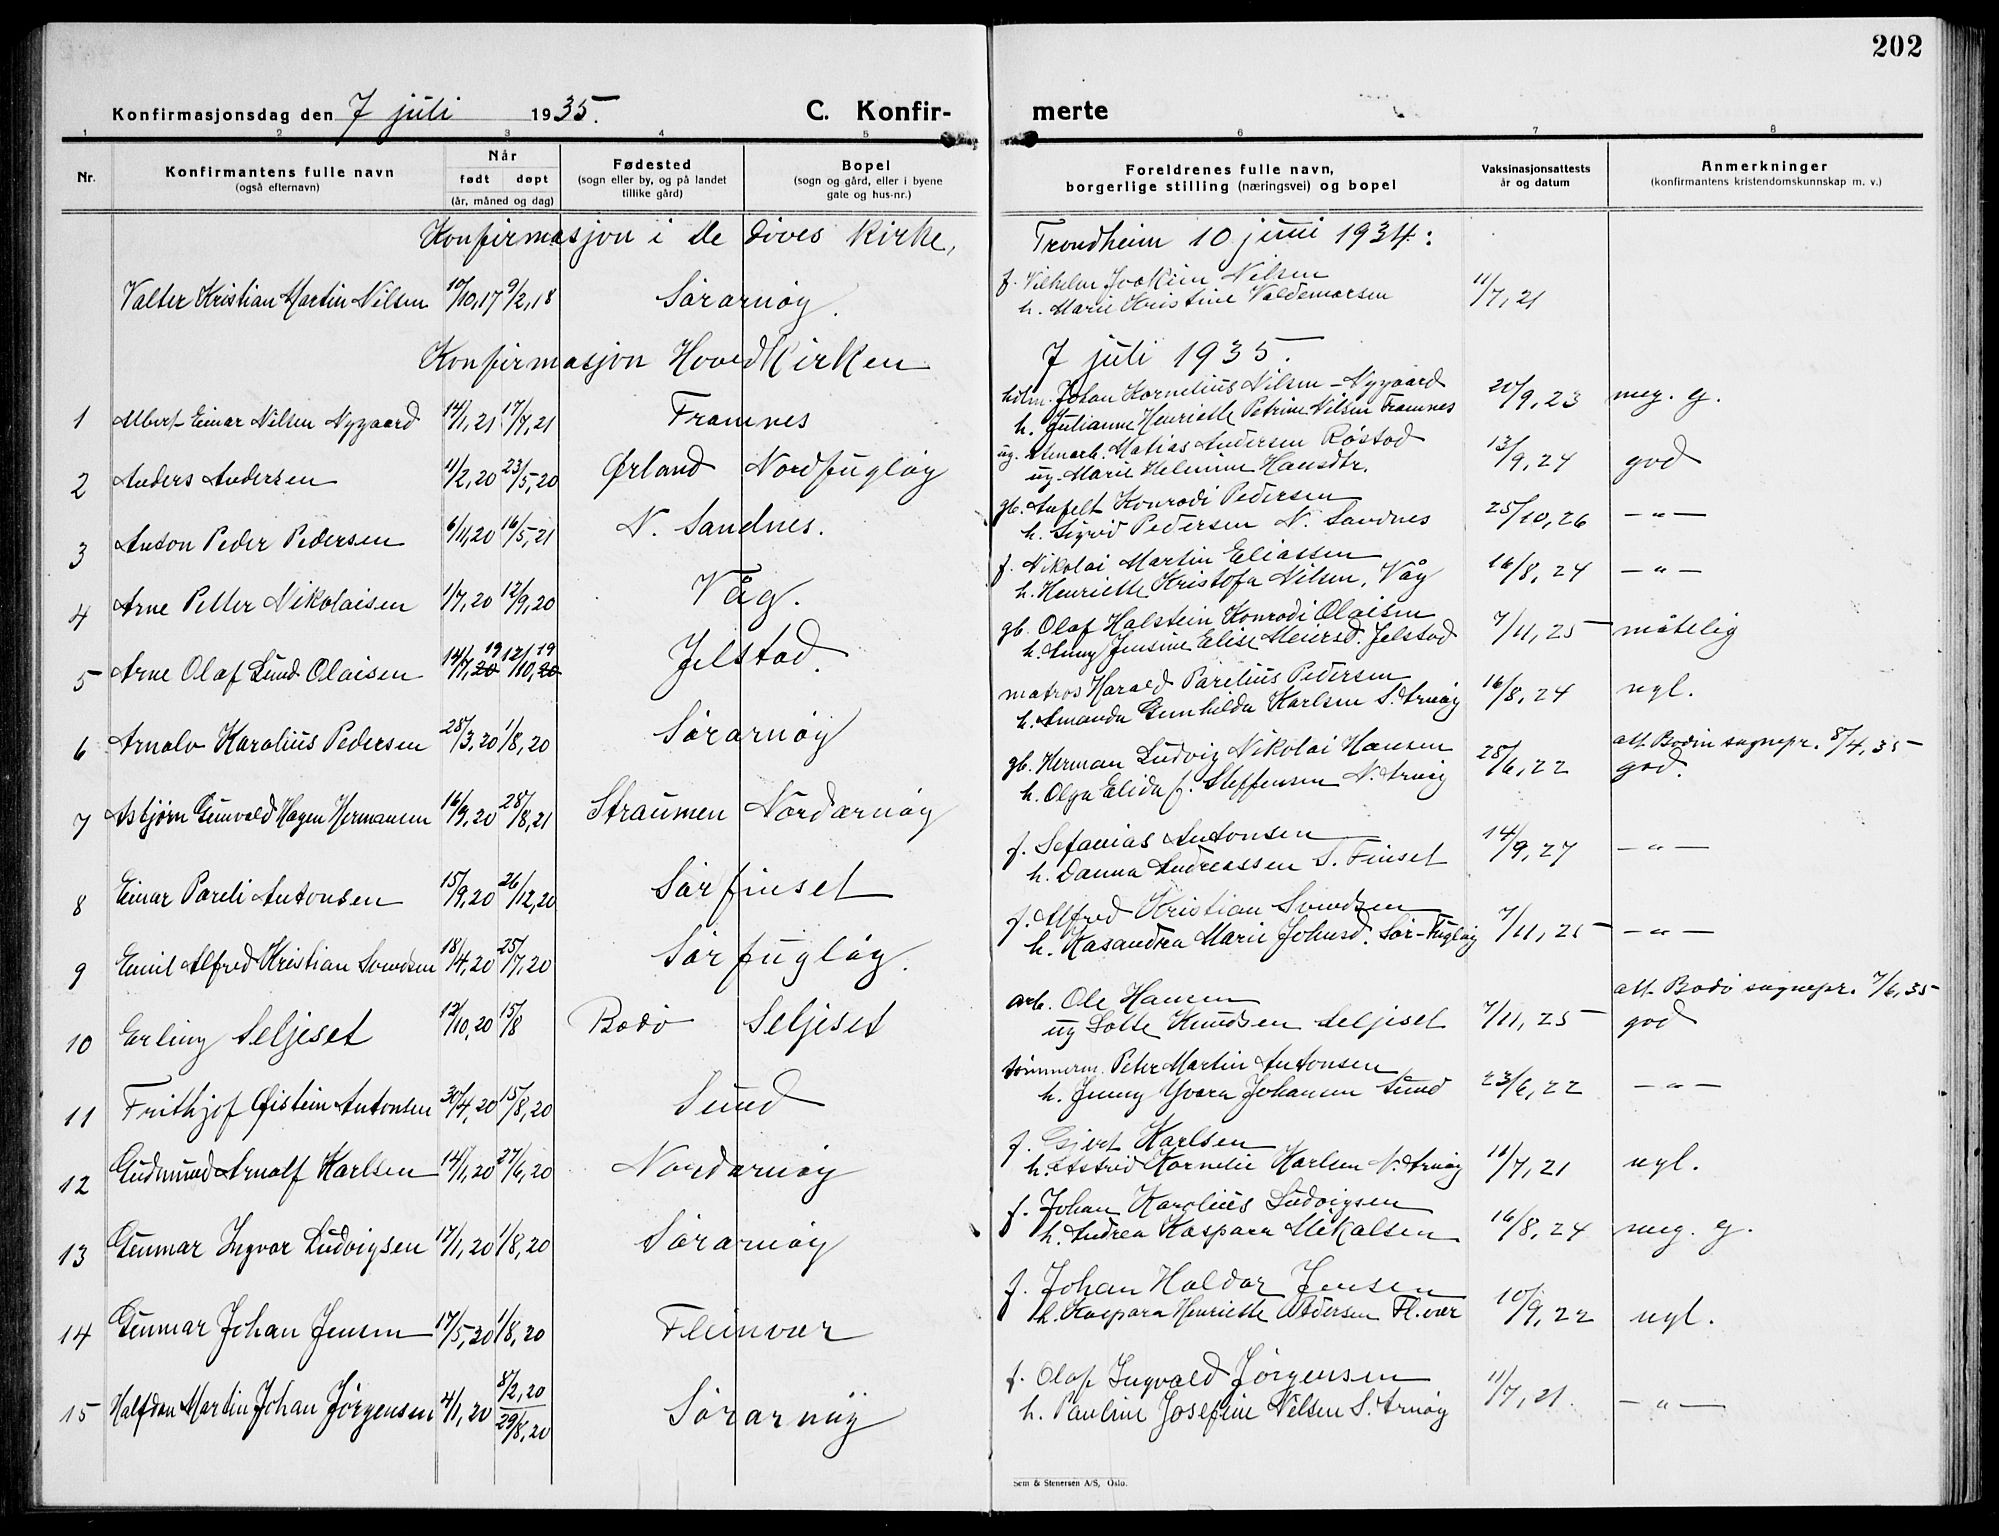 202
Konfirmasjonsdag den 7 juli 1935.
C. Konfir-
merte
1 2 3 4 5 6 7 8
Nr.
Konfirmantens fulle navn
(også efternavn)
Når
født døpt
(år, måned og dag)
Fødested
(sogn eller by, og på landet
tillike gård)
Bopel
(sogn og gård, eller i byene
gate og hus-nr.)
Foreldrenes fulle navn,
borgerlige stilling (næringsvei) og bopel
Vaksinasjonsattests
år og datum
Anmerkninger
(konfirmantens kristendomskunnskap m. v.)
Konfirmasjon i de døves kirke, Trondheim 10 juni 1934:
Valter Kristian Martin Nilsen 10/10,17 9/2,18 Sørarnøy.
f. Vilhelm Joakim Nilsen
h. Marie Kristine Valdemarsen 11/7,21
Konfirmasjon Hovedkirken 7 juli 1935.
1 Albert Einar Nilsen Nygaard 14/1,21 17/7,21 Framnes
Johan Kornelius Nilsen-Nygaard
h. Julianne Henriette Petrine Nilsen Framnes 20/9,23 meg. g.
2 Anders Andersen 11/2,20 23/5,20 Ørland Nordfugløy
ug. Matias Andersen Røstad
ug. Marie Helmine Hansdtr. 13/9,24 god
3 Anton Peder Pedersen 6/11,20 16/5,21 N. Sandnes.
gb. Anfelt Konradi Pedersen
h. Sigrid Pedersen N. Sandnes 25/10,26 —"—
4 Arne Petter Nikolaisen 1/7,20 12/9,20 Våg.
f. Nikolai Martin Eliassen
h. Henriette Kristofa Nilsen, Våg 16/8,24 —"—
5 Arne Olaf Lund Olaisen 14/7,20 19 12/10,20 19 Jelstad.
gb. Olaf Halstein Konradi Olaisen
h. Anny Jensine Elise Meiersd. Jelstad 7/11,25 måtelig
6 Arnalv Karolius Pedersen 28/3,20 1/8,20 Sørarnøy
matros Harald Parelius Pedersen
h. Amanda Gunhilda Karlsen S. Arnøy 16/8,24 ngl.
7 Asbjørn Gunvald Hagen Hermansen 16/9,20 28/8,21 Straumen Nordarnøy
gb. Herman Ludvig Nikolai Hansen
h. Olga Elida f. Steffensen N. Arnøy 28/6,22 att. Bodin sognepr. 8/4,35
god.
8 Einar Pareli Antonsen 15/9,20 26/12,20 Sørfinset
f. Sefanias Antonsen
h. Danna Andreassen S. Finset 14/9,27 —"—
9 Emil Alfred Kristian Svendsen 18/4,20 25/7,20 Sørfugløy.
f. Alfred Kristian Svendsen
h. Kasandra Marie Johnsd. Sør-Fugløy 7/11,25 —"—
10 Erling Seljeset 12/10,20 15/8 Bodø Seljeset
arb. Ole Hansen
ug Lotte Knudsen Seljeset 7/11,25 att. Bodø sognepr. 7/6,35
god
11 Frithjof Øistein Antonsen 30/4,20 15/8,20 Sund
tømmerm. Peter Martin Antonsen
h. Jenny Yvara Johansen Sund 23/6,22 —"—
12 Gudmund Arnolf Karlsen 14/1,20 27/6,20 Nordarnøy
f. Gjert Karlsen
h. Astrid Kornelie Karlsen N. Arnøy 11/7,21 ngl.
13 Gunnar Ingvar Ludvigsen 17/1,20 1/8,20 Sørarnøy
f. Johan Karolius Ludvigsen
h. Andrea Kaspara Mikalsen 16/8,24 meg. g.
14 Gunnar Johan Jensen 17/5,20 1/8,20 Fleinvær
f. Johan Haldor Jensen
h. Kaspara Henriette Pedersen Fl.vær 10/9,22 ngl.
15 Halfdan Martin Johan Jørgensen 4/1,20 8/2,20 29/8,20 Sørarnøy
f. Olaf Ingvald Jørgensen
h. Pauline Josefine Nilsen S. Arnøy 11/7,21. —"—
Sem & Stenersen A/S, Oslo.